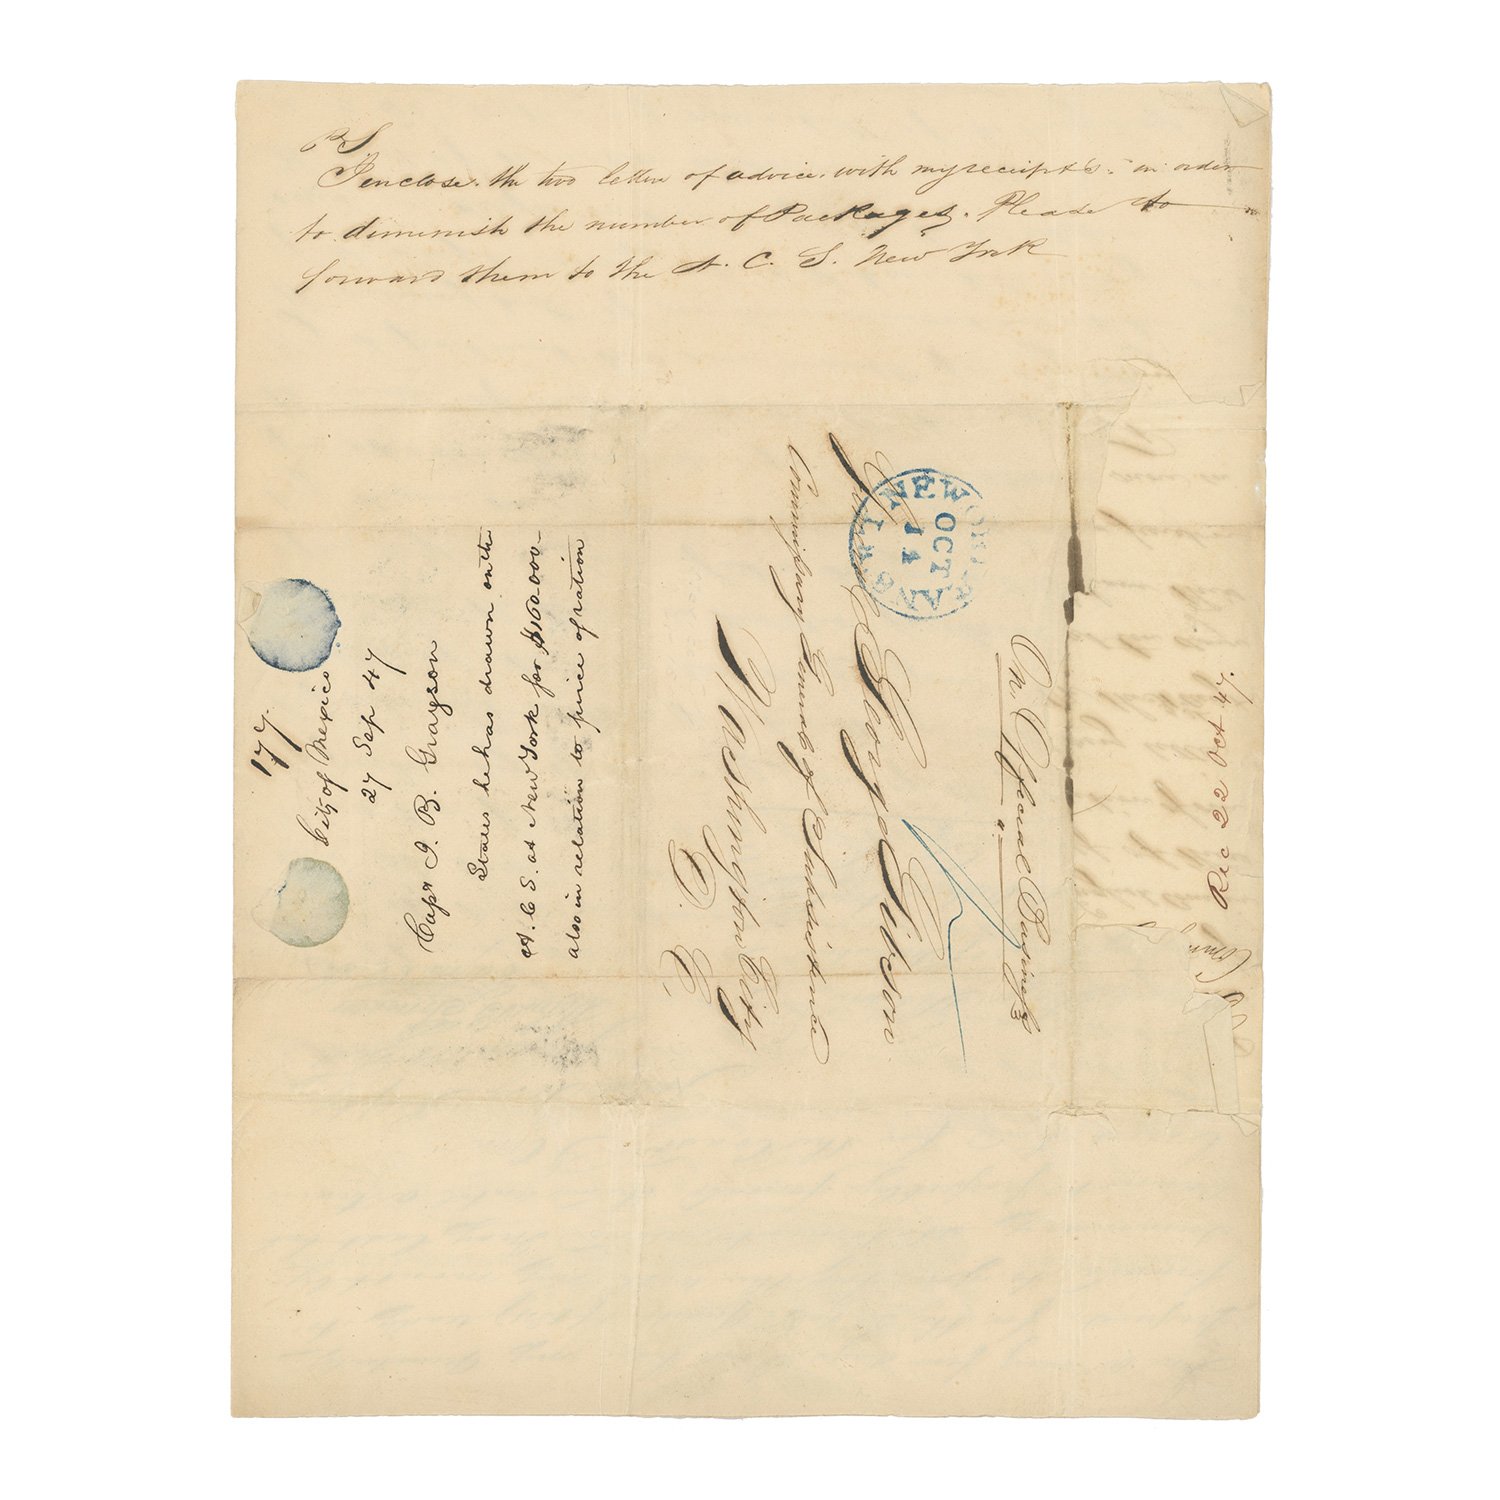 PS
I enclose the two letters of advice with my receipts in order
to diminish the number of Packages. Please to
forward them to the A. C. S. New York
On Official Business
NEW ORLEANS
OCT
General George Gibson
Commissary General of Subsistence
Washington City
D. C.
177
City of Mexico
27 Sep 47
Capt J. B. Grayson
States he has drawn on the
A. C. S. at New York for $160000
also in relation to price of ration
Rec 22 Oct 47.